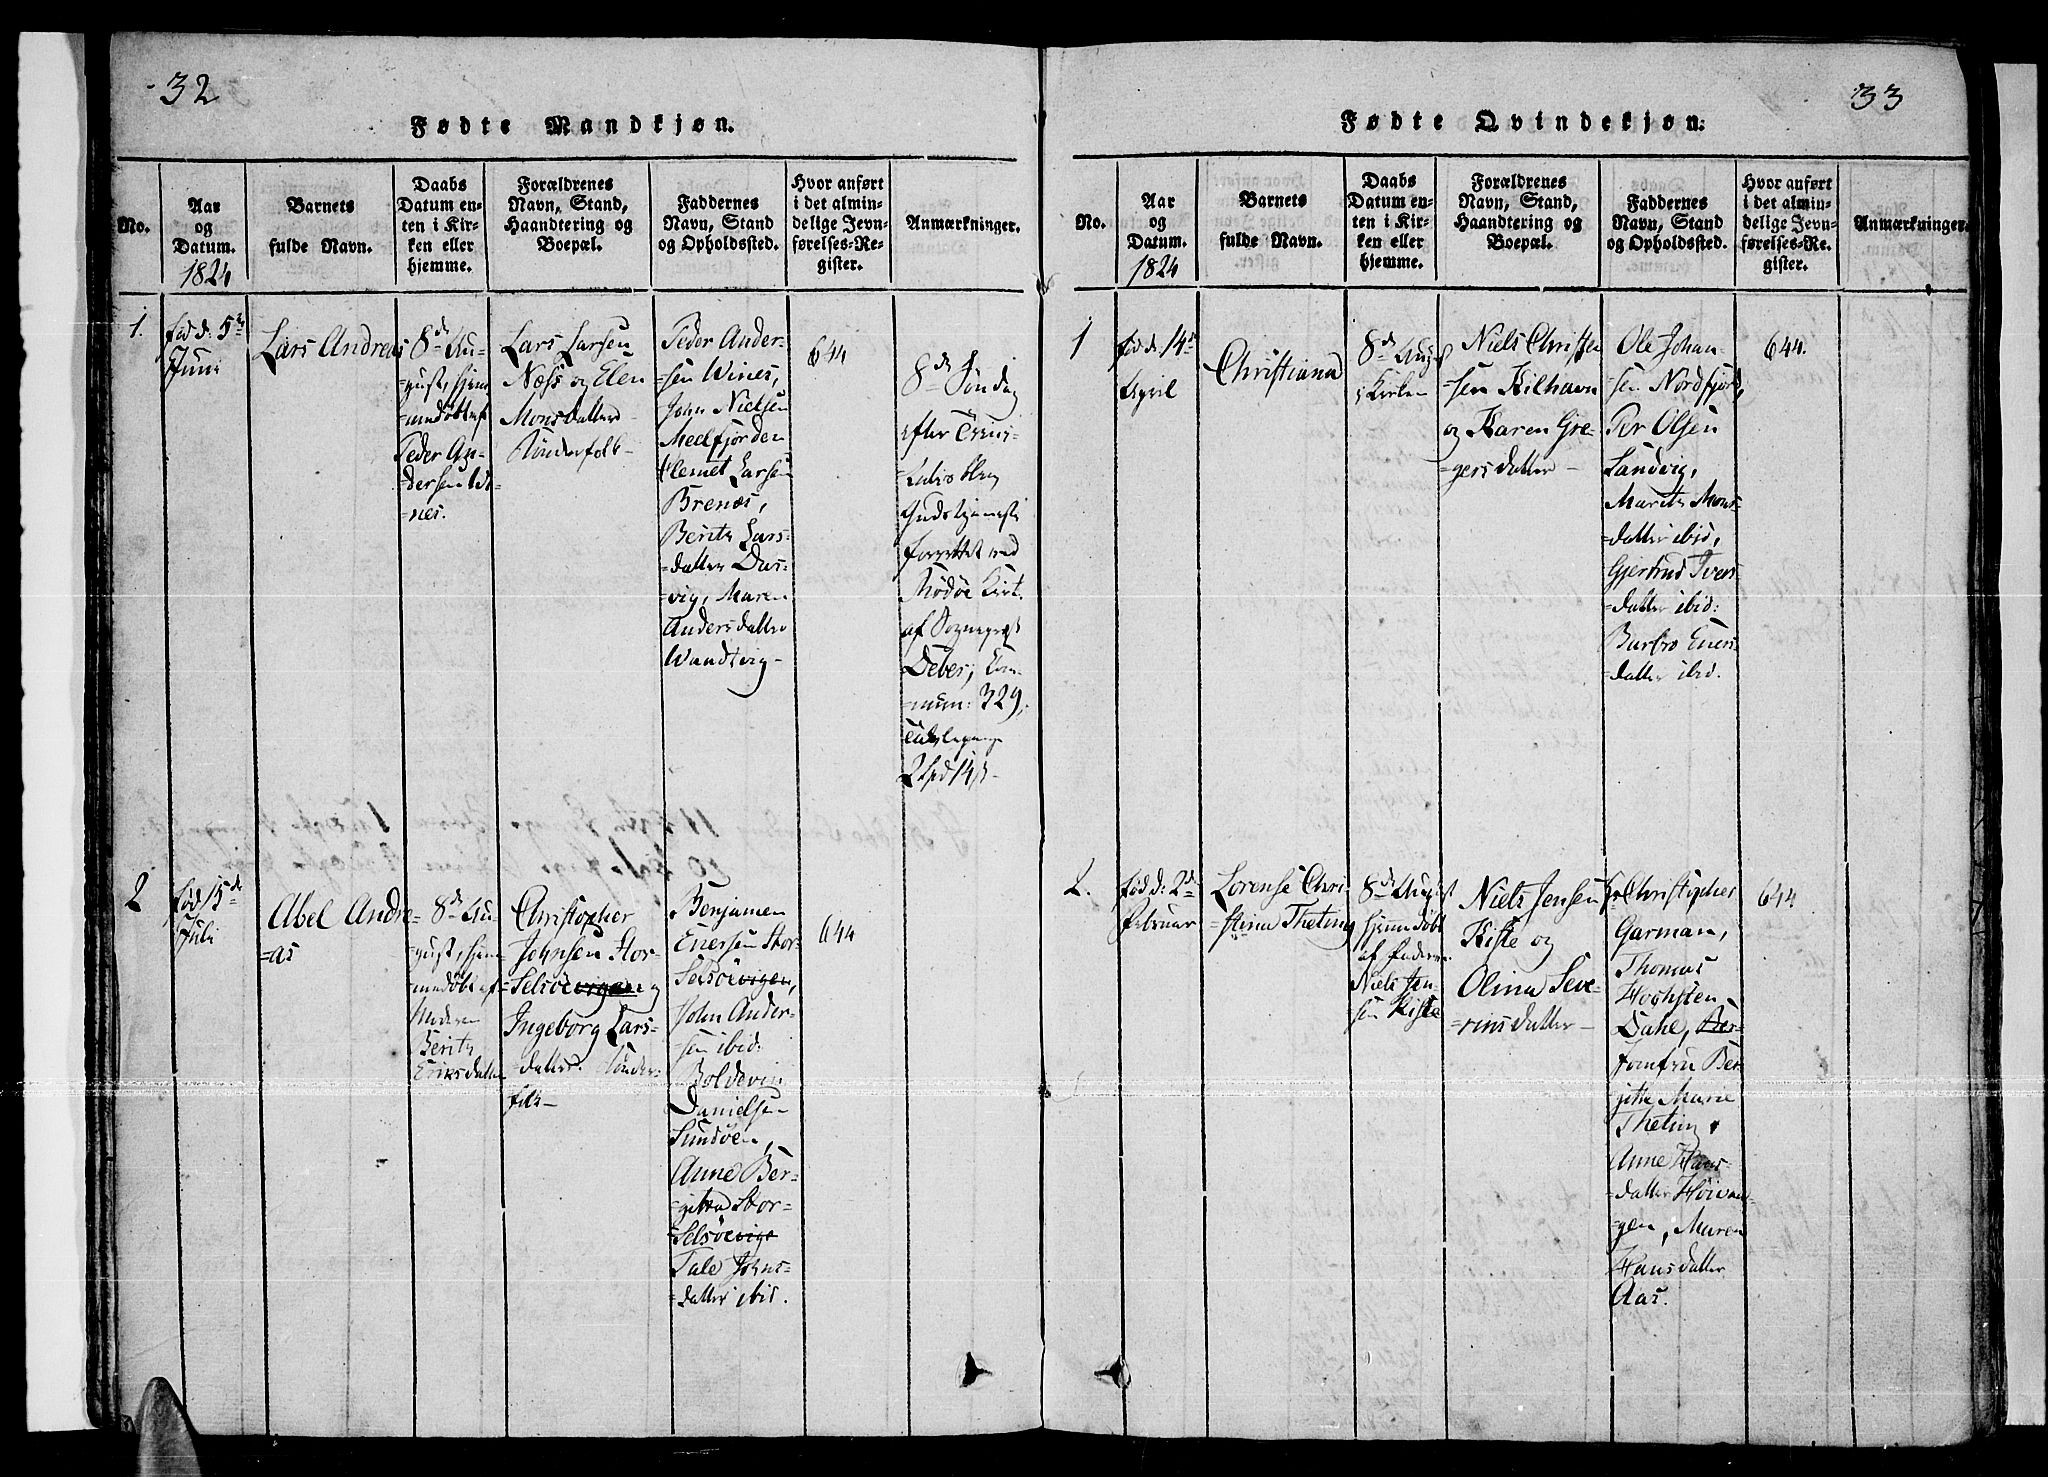 32
Fødte Mandkjøn.
No.
Aar
og
Datum.
1824
Barnets
fulde Navn.
Daabs
Datum en-
ten i Kir-
ken eller
hjemme.
Forældrenes
Navn, Stand,
Haandtering og
Boepæl.
Faddernes
Navn, Stand
og Opholdssted.
Hvor anført
i det almin-
delige Jevn-
førelses-Re-
gister.
Anmærkninger.
1.
fød d: 5te
Juni
Lars Andreas
8de Au-
=gust, hjem-
=medøbt af
Peder An-
dersen Wi-
=nes.
Lars Larsen
Næss og Elen
Monsdatter
Bønderfolk-
Peder Ander-
=sen Wines,
John Nielsen
Meelfjorden
Clemet Larsen
Brenæs,
Berith Lars-
=datter Dars-
=vig, Maren
Andersdatter
Wandtvig-
644
8de Søndag
efter Trini-
=tatis blev
Gudstjeneste
forrettet ved
Rødøe Kirke
af Sognepræst
Deber, Com-
=mun: 329,
Tavlepenge
2 Spd 14 s-
2
fød 15de
Juli
Abel Andre-
=as
8de Au-
=gust, hjem-
=medøbt af
Moderen
Berith
Eriksdatter
Christopher
Johnsen Stor-
=Selsöevigen og
Ingeborg Lars-
=datter Bønder-
folk-
Benjamen
Enersen Stor-
Selsöevigen,
John Ander-
=sen ibid:
Boldevin
Danielsen
Sundöen,
Anne Ber-
=githa Stor-
=Selsöevige
Tale Johns-
=datter ibid.
644
33
Fødte Qvindekjøn.
No.
Aar
og
Datum.
1824
Barnets
fulde Navn.
Daabs
Datum en-
ten i Kir-
ken eller
hjemme.
Forældrenes
Navn, Stand,
Haandtering og
Boepæl.
Faddernes
Navn, Stand
og Opholdssted.
Hvor anført
i det almin-
delige Jevn-
førelses-Re-
gister.
Anmærkninger.
1
fød d: 14de
April
Christiana
8de Aug:
i Kirken
Niels Christen
=sen Kilhavn
og Karen Gre-
=gersdatter-
Ole Johan-
=sen Nordfjord,
Per Olsen
Sandvig,
Marith Mons-
=datter ibid,
Gjertrud Ivers-
=datter ibid:
Barbro Eners-
datter ibid.
644.
2.
fød d: 2de
Februar
Lorense Chri-
=stina Theting
8de August
hjemmedøbt
af Faderen
Niels Jen-
sen Kiste
Niels Jensen
Kiste og
Olina Seve-
=rinsdatter-
Hr Christopher
Garman,
Thomas
Hochsten
Dahl, Ber-
Jomfru Ber-
gitte Marie
Theting
Anne Hans-
=datter Höivaa-
=gen, Maren
Hansdatter
Aas.
644